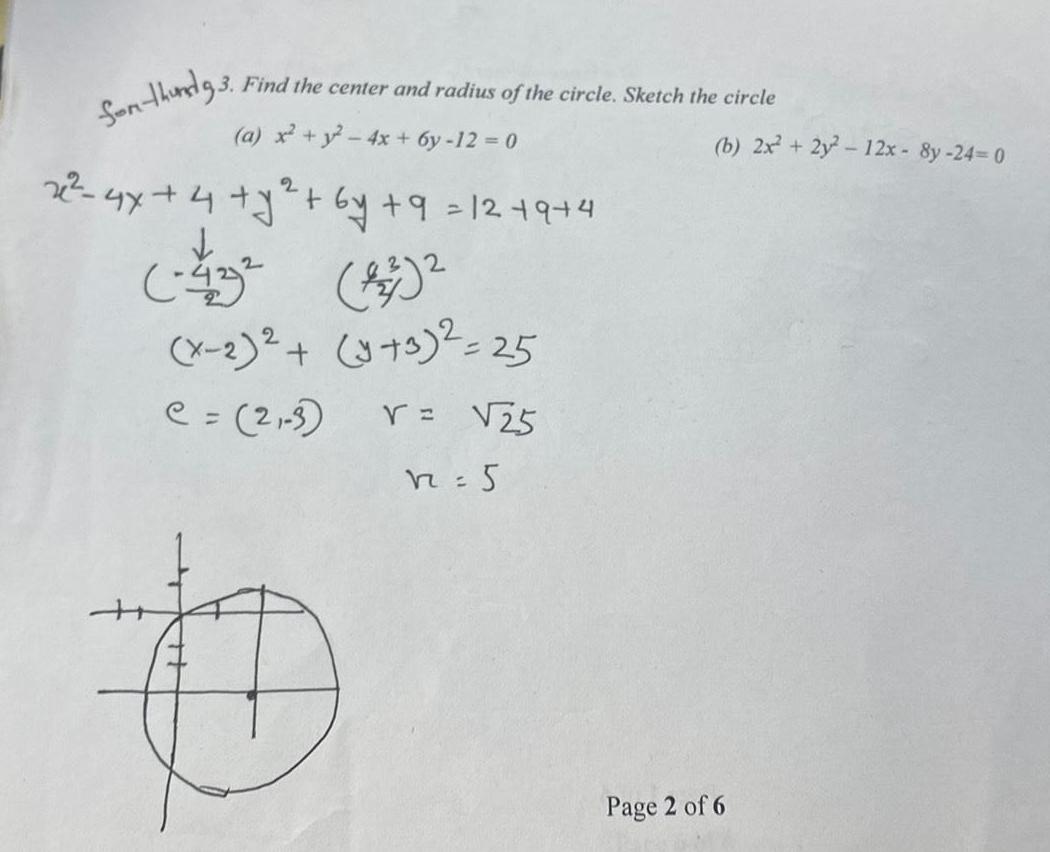 3. Find the center and radius of the circle. Sketch the circle
(a) x² + y² – 4x + 6y -12 = 0
(b) 2x² + 2y² – 12x - 8y -24= 0
x² - 4x + 4 + y² + 6y + 9 = 12 + 9 + 4
(x-2)² + (y+3)² = 25
c = (2,-3) r = √25
r = 5
Page 2 of 6